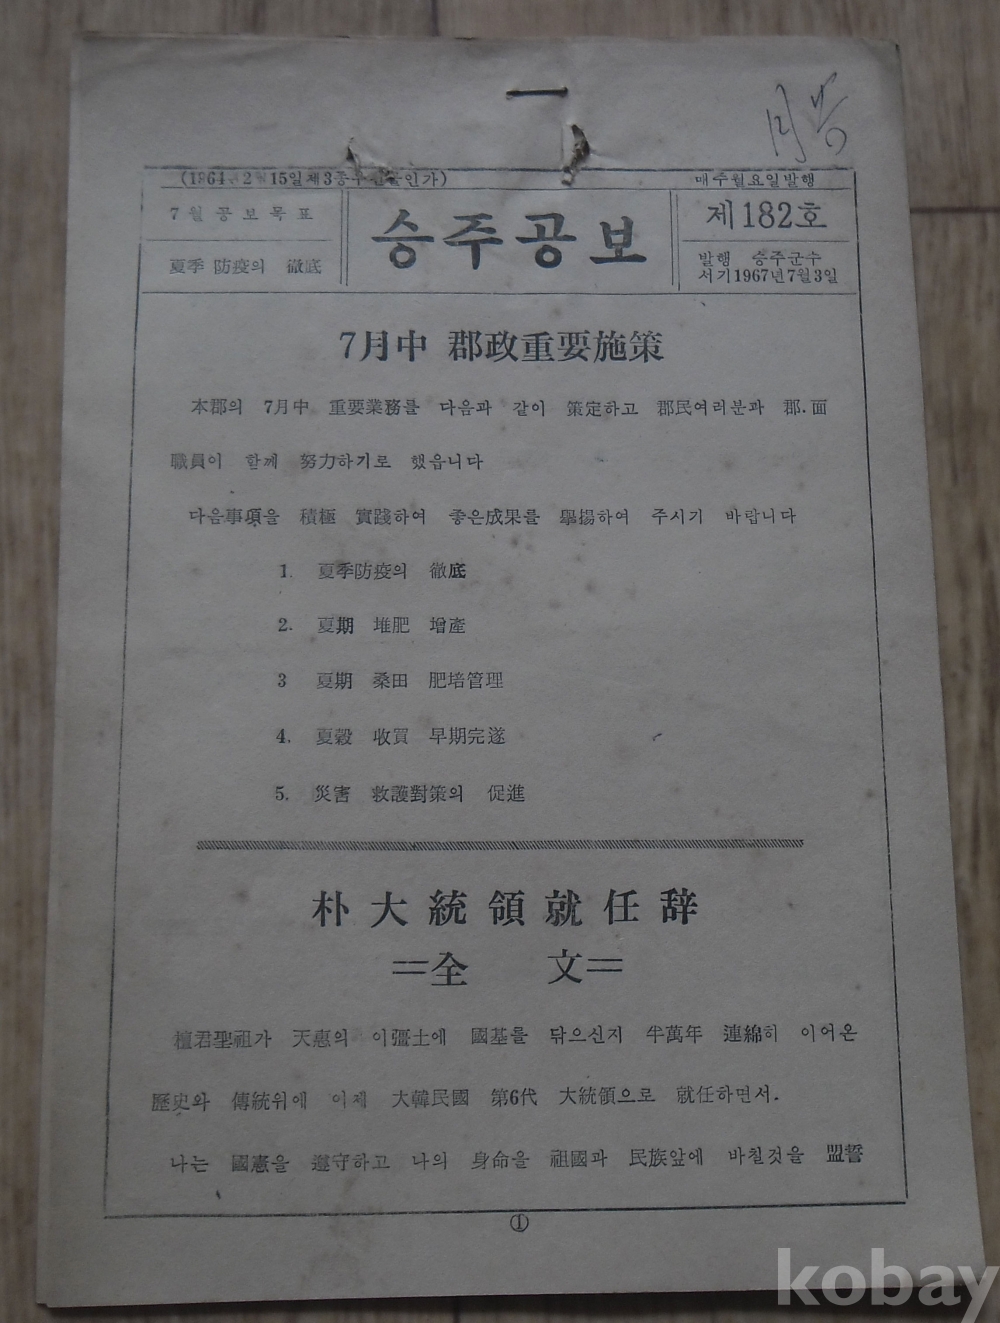 (1964.2월15일제3종우편물인가)
매주월요일발행
7월공보목표
夏季 防疫의 徹底
승주공보
제182호
발행 승주군수
서기1967년7월3일
7月中 郡政重要施策
本郡의 7月中 重要業務를 다음과 같이 策定하고 郡民여러분과 郡.面
職員이 함께 努力하기로 했읍니다
다음事項을 積極 實踐하여 좋은成果를 擧揚하여 주시기 바랍니다
1. 夏季防疫의 徹底
2. 夏期 堆肥 增產
3 夏期 桑田 肥培管理
4. 夏穀 收買 早期完遂
5. 災害 救護對策의 促進
朴大統領就任辞
=全 文=
檀君聖祖가 天惠의 이彊土에 國基를 닦으신지 半萬年 連綿히 이어온
歷史와 傳統위에 이제 大韓民國 第6代 大統領으로 就任하면서.
나는 國憲을 遵守하고 나의 身命을 祖國과 民族앞에 바칠것을 盟誓
①
kobay